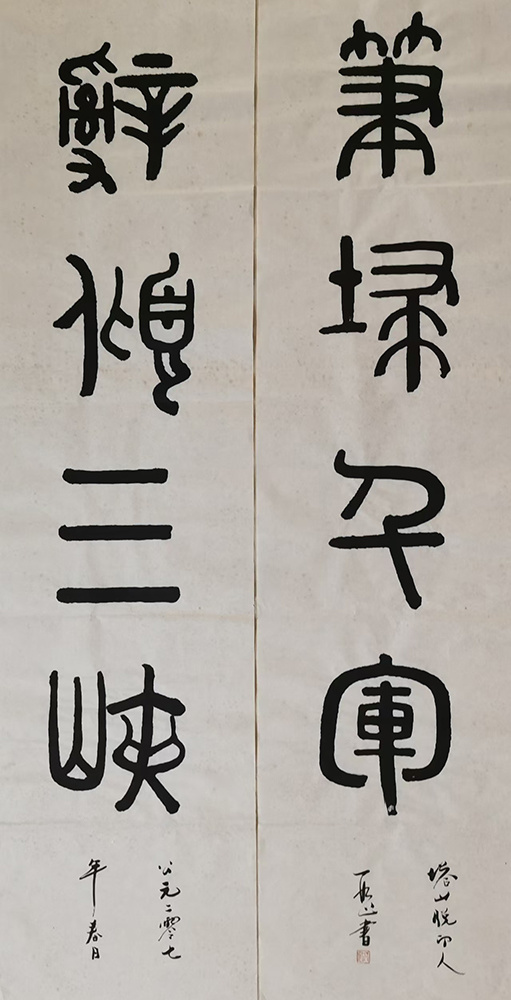 筆掃千軍
塔山印人
書
辭傾三峽
公元二零七
年春月